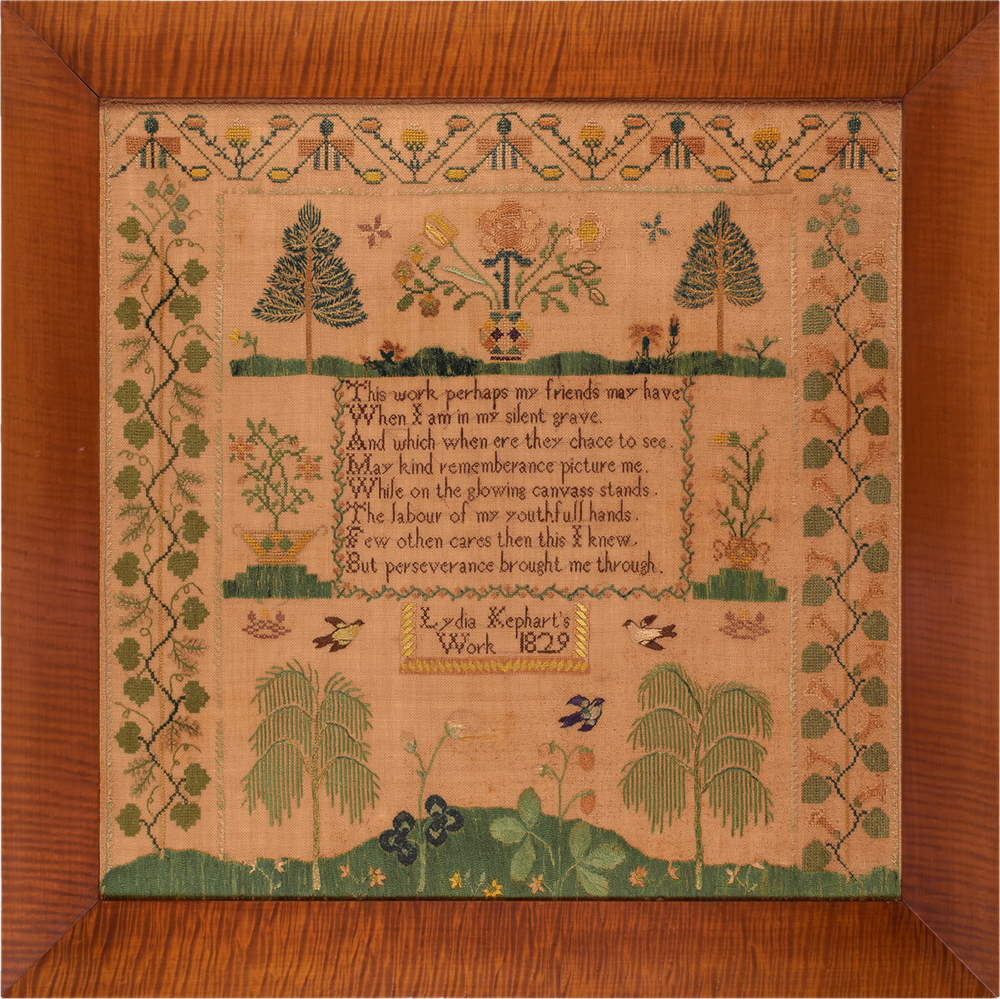 This work perhaps my friends may have
When I am in my silent grave.
And which when ere they chace to see.
May kind rememberance picture me.
While on the glowing canvass stands.
The labour of my youthfull hands.
Few othen cares then this I knew.
But perseverance brought me through.
Lydia Kephart's
Work 1829